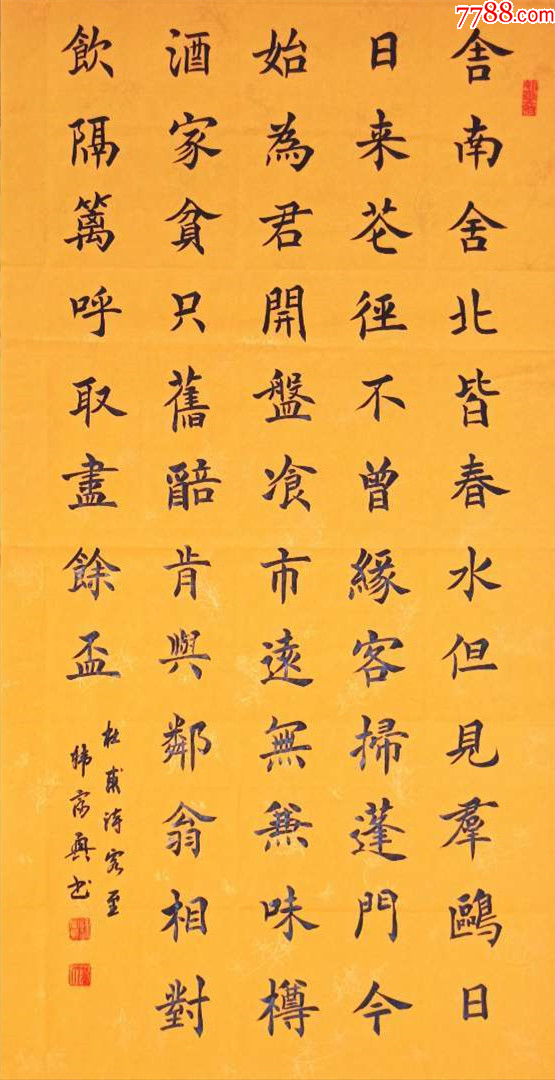 7788.com
舍南舍北皆春水但見羣鷗日
日来花徑不曾緣客掃蓬門今
始為君開盤飡市遠無兼味樽
酒家貧只舊醅肯與鄰翁相對
飲隔籬呼取盡餘盃
杜甫詩客至